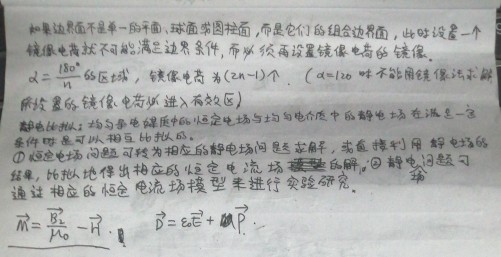 如果边界面不是单一的平面、球面或圆柱面,而是它们的组合边界面,此时设置一个
镜像电荷就不可能满足边界条件,而必须再设置镜像电荷的镜像.
α=180°/n 的区域,镜像电荷为(2n-1)个.(α=120 时不能用镜像法求解
所设置的镜像电荷必进入有效区)
静电比拟:均匀导电媒质中的恒定电场与均匀电介质中的静电场在满足一定
条件时是可以相互比拟的.
①恒定电场问题可转为相应的静电场问题求解,或直接利用静电场的
结果,比拟地得出相应的恒定电流场的解.②静电场问题可
通过相应的恒定电流场模型来进行实验研究.
M⃗=B⃗/μ₀-H⃗. D⃗=ε₀E⃗+P⃗.